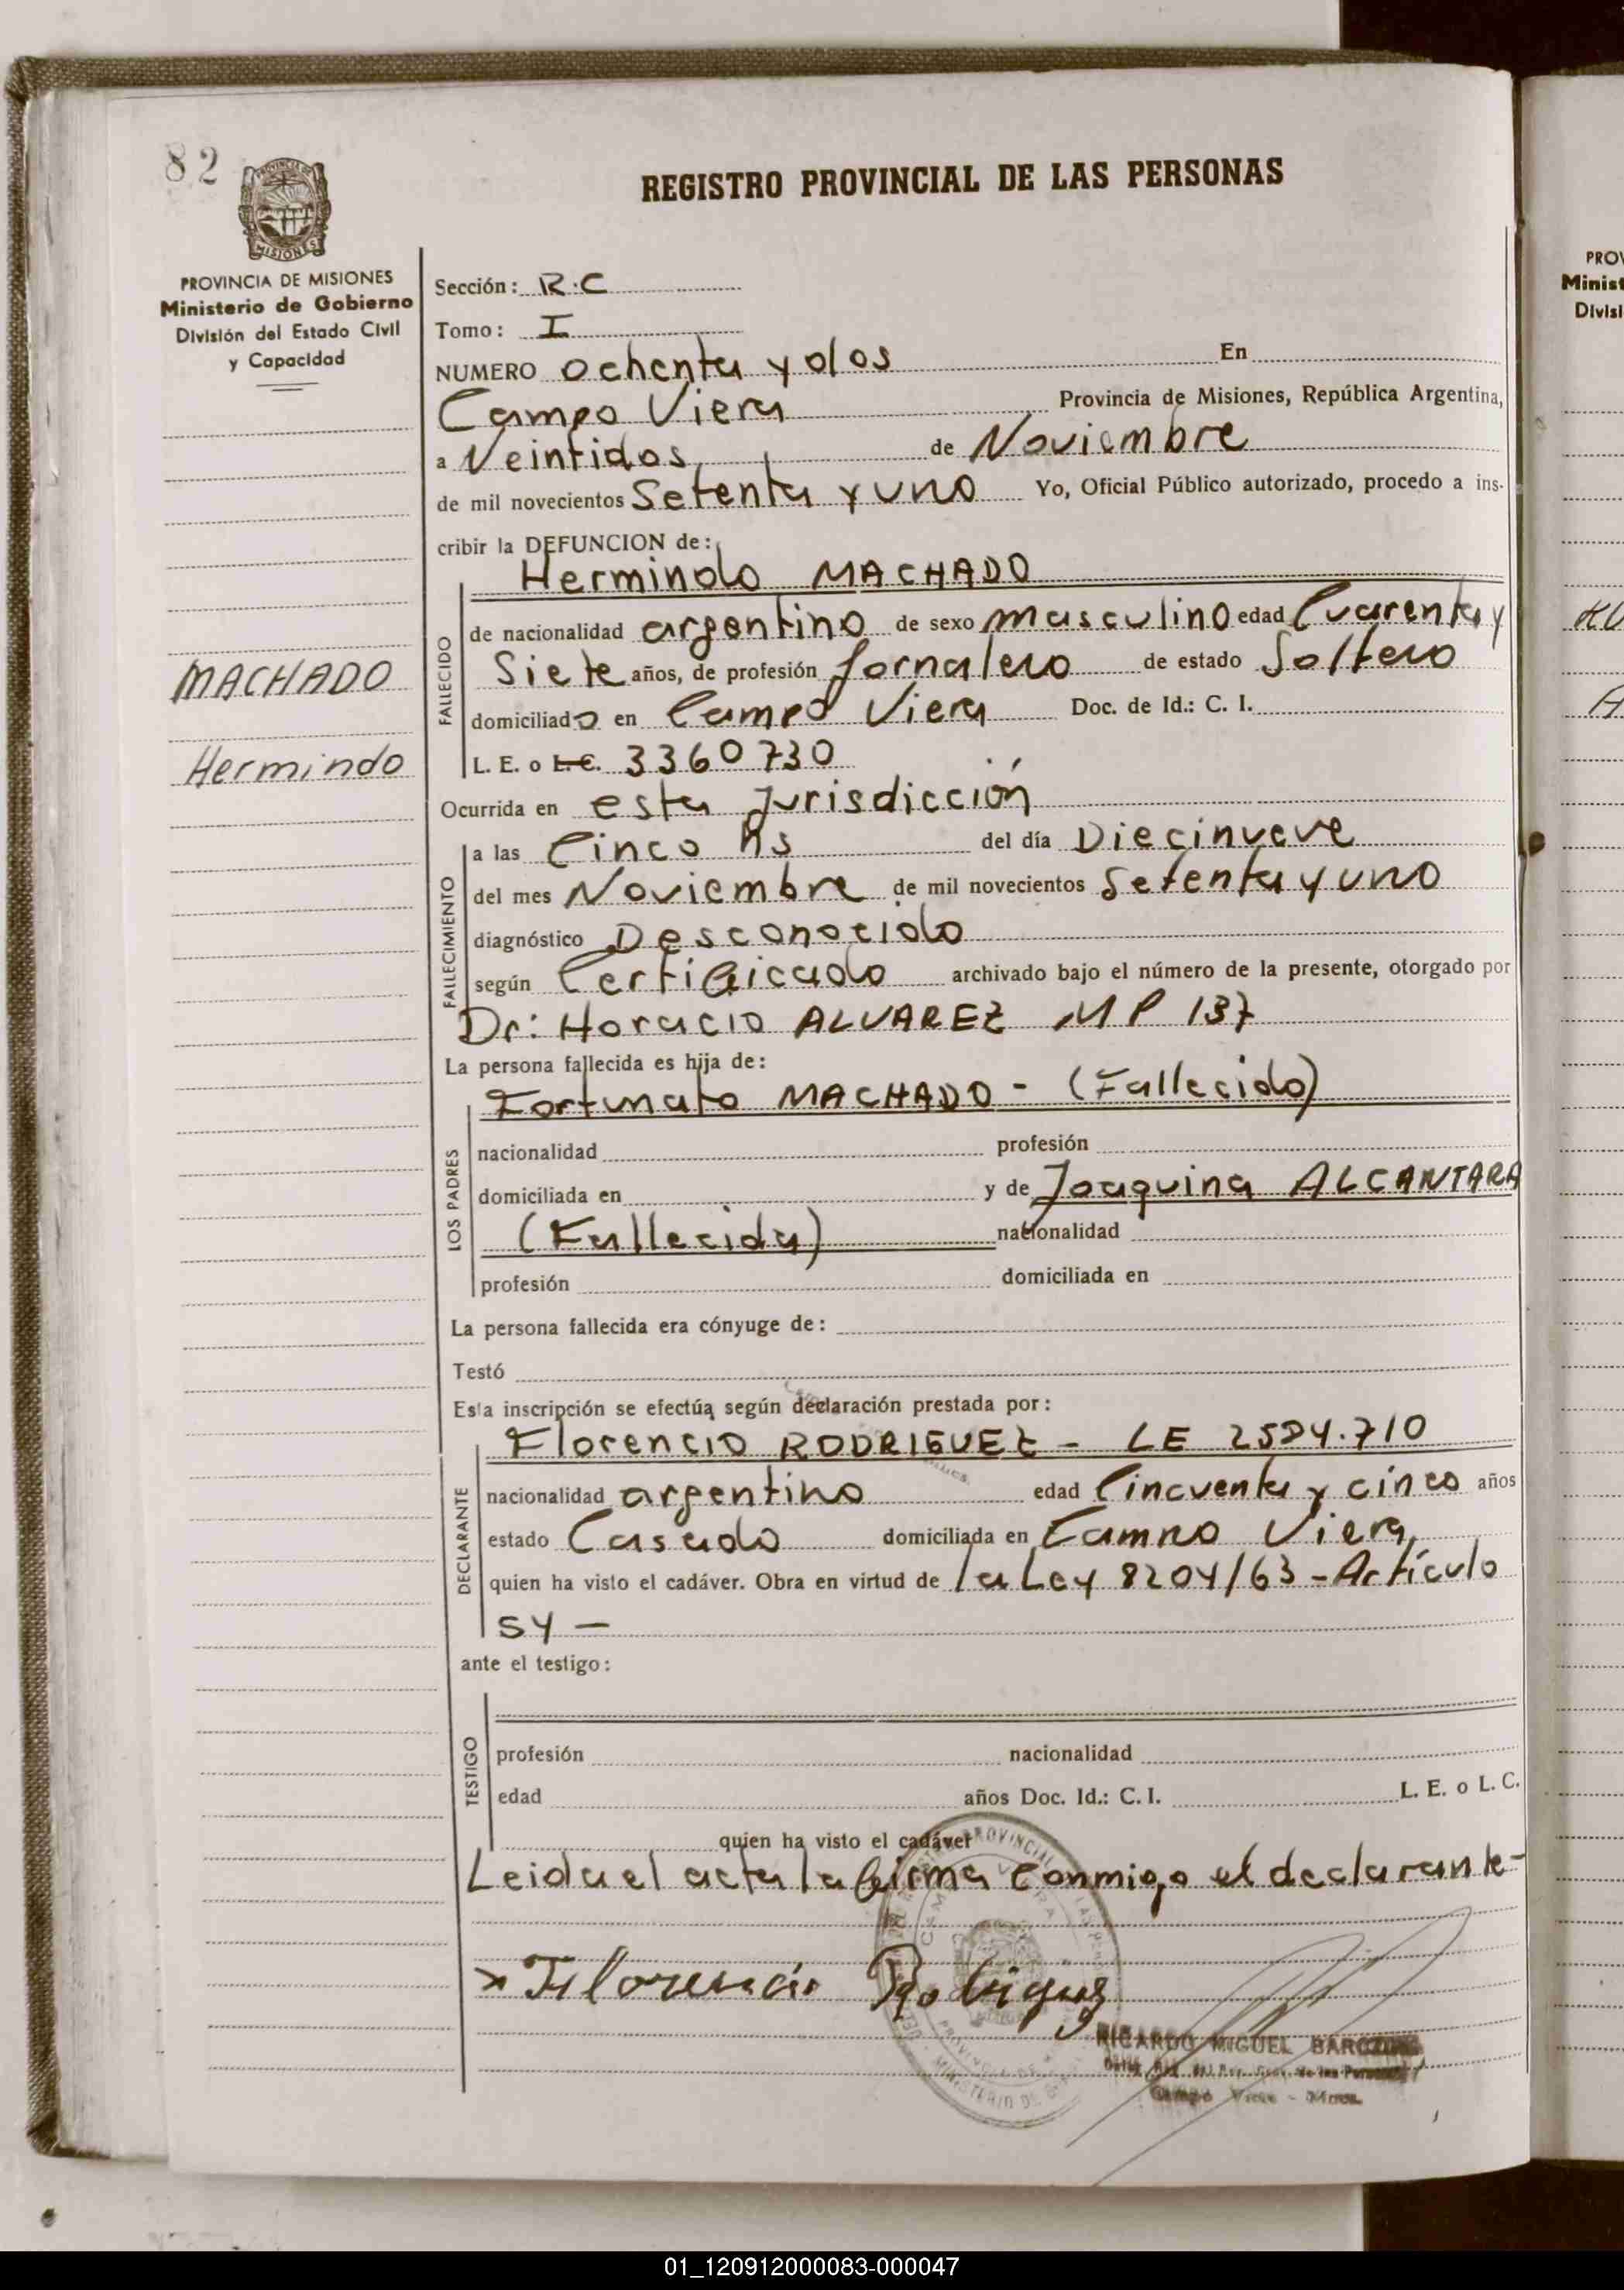 82
PROVINCIA DE MISIONES
Ministerio de Gobierno
División del Estado Civil
y Capacidad
REGISTRO PROVINCIAL DE LAS PERSONAS
Sección: R.C
Tomo: I
NUMERO Ochenta y dos En
Campo Viera Provincia de Misiones, República Argentina,
a Veintidos, de Noviembre
de mil novecientos Setenta y uno Yo, Oficial Público autorizado, procedo a ins-
cribir la DEFUNCION de:
Hermindo MACHADO
FALLECIDO
de nacionalidad argentino de sexo masculino edad Cuarenta y
Siete años, de profesión Jornalero de estado Soltero
MACHADO
domiciliado en Campo Viera Doc. de Id.: C. I.
Hermindo
L. E. o L.C. 3360730
Ocurrida en esta Jurisdicción
FALLECIMIENTO
a las Cinco hs del día Diecinueve
del mes Noviembre de mil novecientos Setenta y uno
diagnóstico Desconocido
según Certificado archivado bajo el número de la presente, otorgado por
Dr: Horacio ALVAREZ MP 137
La persona fallecida es hija de:
Fortunato MACHADO - (Fallecido)
LOS PADRES
nacionalidad profesión
domiciliada en y de Joaquina ALCANTARA
(Fallecida) nacionalidad
profesión domiciliada en
La persona fallecida era cónyuge de:
Testó
Esta inscripción se efectúa según declaración prestada por:
Florencio RODRIGUEZ - LE
DECLARANTE
nacionalidad argentino edad Cincuenta y cinco años
estado Casado domiciliada en Campo Viera,
quien ha visto el cadáver. Obra en virtud de la Ley 8204/63 - Artículo
54 -
ante el testigo:
TESTIGO
profesión nacionalidad
edad años Doc. Id.: C. I. L. E. o L. C.
quien ha visto el cadáver
Leida el acta la firma Conmigo el declarante-
Florencio Rodriguez
RICARDO MIGUEL
Campo Viera - Mnes.
PROV
Minist
Divisi
01_120912000083-000047